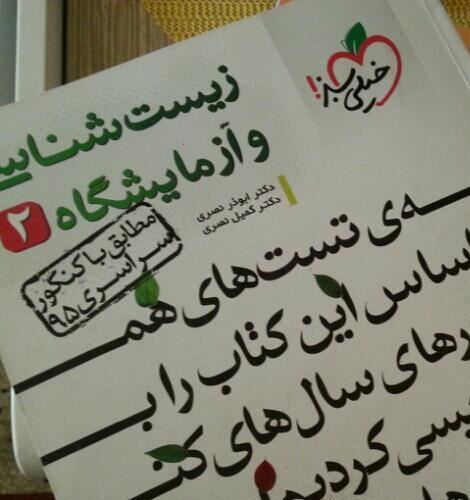 خیلی سبز!
زیست‌شناسی
و آزمایشگاه ۲
دکتر ابوذر نصری
دکتر کمیل نصری
مطابق با کنکور
سراسری ۹۵
ـه‌ی تست‌های همـ
اساس این کتاب را بـ
ـرهای سال‌های کنـ
ـیسی کردیم